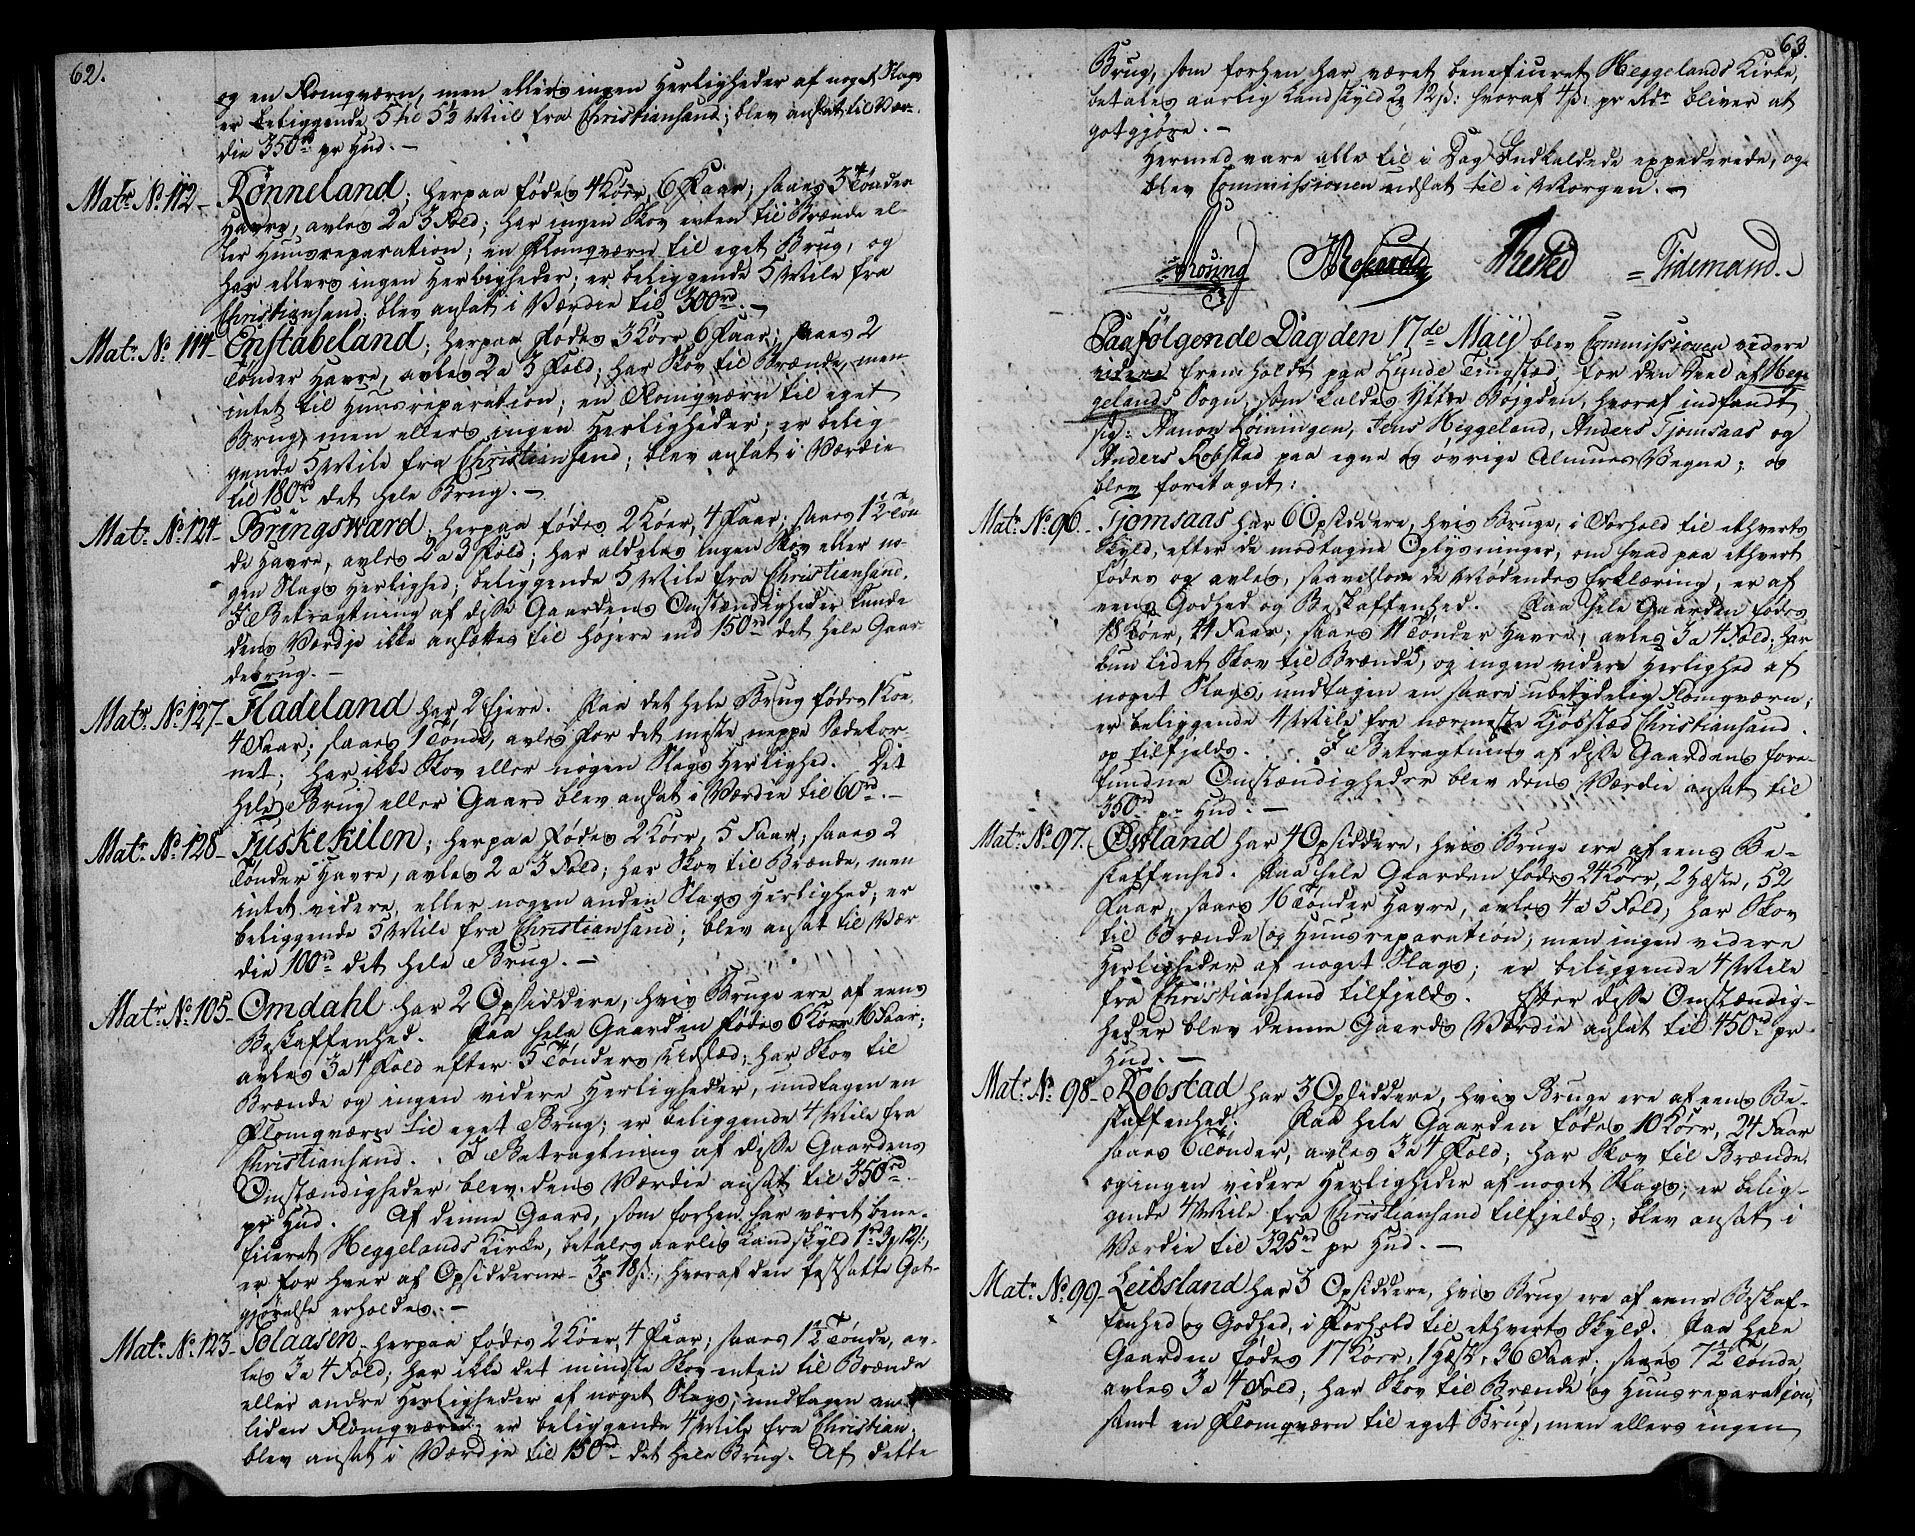 62.
og en Flomqværn, men ellers ingen Herligheder af noget Slags
er beliggende 5 til 5½ Miil fra Christiansand; blev ansat til Vær-
die 350rd pr Hud. —
Matr. No. 112 – Rønneland; herpaa fødes 4 Køer, 6 Faar; saaes 3 Tønder
Havre, avles 2 a 3 Fold; har ingen Skov enten til Brænde el-
ler Huusreparation; en Flomqværn til eget Brug, og
har ellers ingen Herligheder; er beliggende 5 Mile fra
Christiansand; blev ansat i Værdie til 300rd. —
Matr. No. 114 – Enstabeland; herpaa fødes 3 Køer, 6 Faar; saaes 2
Tønder Havre, avles 2 a 3 Fold; har Skov til Brænde, men
intet til Huusreparation; en Flomqværn til eget
Brug, men ellers ingen Herligheder; er belig
gende 5 Mile fra Christiansand; blev ansat i Værdie
til 180rd det hele Brug. —
Matr. No. 124 – Bringsward; herpaa fødes 2 Køer, 4 Faar; saaes 1½ Tøn
de Havre, avles 2 a 3 Fold; har aldeles ingen Skov eller no-
gen Slags Herlighed; beliggende 5 Mile fra Christiansand.
I Betragtning af disse Gaardens Omstændigheder kunde
dens Værdje ikke ansættes til højere end 150rd det hele Gaar
debrug. —
Matr. No. 127 – Fladeland har 2 Ejere. Paa det hele Brug fødes 1 Koe,
4 Faar; saaes 1 Tønde, avles for det meste neppe Sædekor
net; har ikke Skov eller nogen Slags Herlighed. Det
hele Brug eller Gaard blev ansat i Værdie til 60rd. —
Matr. No. 128 – Fuskekilen; herpaa fødes 2 Køer, 5 Faar; saaes 2
Tønder Havre, avles 2 a 3 Fold; har Skov til Brænde, men
intet videre, eller nogen anden Slags Herlighed; er
beliggende 5 Mile fra Christiansand; blev ansat til Vær
die 100rd det hele Brug. —
Matr. No. 105 – Omdahl har 2 Opsiddere, hvis Bruge ere af eens
Beskaffenhed. Paa hele Gaarden fødes 6 Køer 16 Faar;
avles 3 a 4 Fold efter 5 Tønders Udsæd; har Skov til
Brænde og ingen videre Herligheder, undtagen en
Flomqværn til eget Brug; er beliggende 4 Mile fra
Christiansand. I Betragtning af disse Gaardens
Omstændigheder blev dens Værdie ansat til 350rd
pr Hud. Af denne Gaard, som forhen har været bene-
ficeret Heggelands Kirke, betales aarlig Landskyld 1rd 3 12ß,
er for hver af Opsidderne – 3 18ß, hvoraf den fastsatte Got-
gjørelse erholdes. —
Matr. No. 123 – Tolaasen herpaa fødes 2 Køer, 4 Faar; saaes 1½ Tønde, av-
les 3 a 4 Fold; har ikke det mindste Skov enten til Brænde
eller andre Herligheder af noget Slags, undtagen en
liden Flomqværn; er beliggende 4 Mile fra Christian;
blev ansat i Værdje til 150rd det hele Brug. Af dette
63.
Brug, som forhen har været beneficeret Heggelands Kirke,
betales aarlig Landskyld 2 12ß: hvoraf 4ß: pr Rdr bliver at
gotgjøre. —
Hermed vare alle til i Dag Indkaldede expederede, og
blev Commissionen udsat til i Morgen. —
Tidemand.
Paafølgende Dag den 17de Maij blev Commissionen videre
videre fremholdt paa Lunde Tingstæd, for den Deel af Heg-
gelands Sogn, som kaldes Yttre Bøjgden, hvoraf indfandt
sig: Aanon Løiningen, Jens Heggeland, Anders Tjomsaas og
Anders Robstad paa egne og øvrige Almues Vegne; og
blev foretaget:
Matr. No. 96. – Tjomsaas har 6 Opsiddere, hvis Bruge, i Forhold til ethverts
Skyld, efter de modtagne Oplysninger, om hvad paa ethvert
fødes og avles, saavelsom de Mødendes Erklæring, er af
eens Godhed og Beskaffenhed. Paa hele Gaarden fødes
18 Køer, 44 Faar; saaes 11 Tønder Havre, avles 3 a 4 Fold; har
kun lidet Skov til Brænde, og ingen videre Herlighed af
noget Slags, undtagen en saare ubetydelig Flomqværn;
er beliggende 4 Mile fra nærmeste Kjøbstæd Christiansand
op tilfjelds. I Betragtning af disse Gaardens fore-
fundne Omstændigheder blev dens Værdie ansat til
350rd pr Hud. —
Matr. No. 97. Øvland har 4 Opsiddere, hvis Bruge ere af eens Be-
skaffenhed. Paa hele Gaarden fødes 24 Køer, 2 Hæste, 52
Faar, saaes 16 Tønder Havre, avles 4 a 5 Fold; har Skov
til Brænde og Huusreparation, men ingen videre
Herligheder af noget Slags; er beliggende 4 Mile
fra Christiansand tilfjelds. Efter disse Omstændig-
heder blev denne Gaards Værdie ansat til 450rd pr
Hud. —
Matr. No. 98 – Robstad har 3 Opsiddere, hvis Bruge ere af eens Be-
skaffenhed. Paa hele Gaarden fødes 10 Køer, 24 Faar
saaes 6 Tønder, avles 3 a 4 Fold; har Skov til Brænde
og ingen videre Herligheder af noget Slags; er belig-
gende 4 Mile fra Christiansand tilfjelds; blev ansat i
Værdie til 325rd pr Hud. —
Matr. No. 99 – Leibsland har 3 Opsiddere, hvis Brug ere af eens Beskaf-
fenhed og Godhed, i Forhold til ethverts Skyld. Paa hele
Gaarden fødes 17 Køer, 1 Hæst, 36 Faar; saaes 7½ Tønde,
avles 3 a 4 Fold; har Skov til Brænde og Huusreparation,
samt en Flomqværn til eget Brug, men ellers ingen